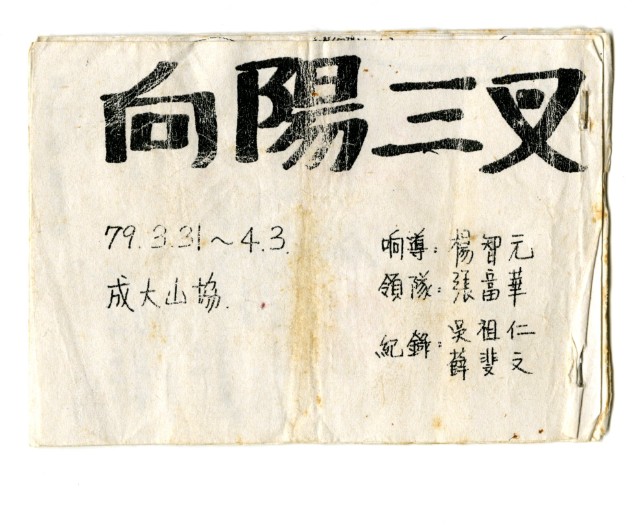 向陽三叉
79.3.31～4.3.
成大山協.
响導：楊智元
領隊：張富華
紀錄：吳祖仁
薛斐文